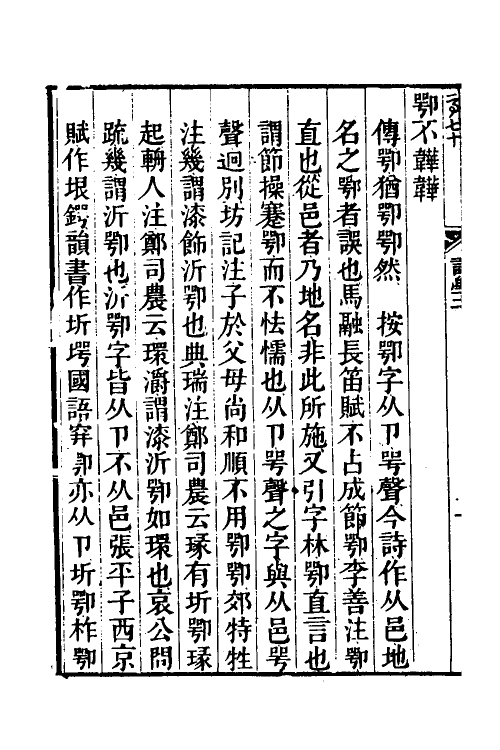 卾不韡韡
傳卾猶卾卾然　按卾字从卩咢聲今詩作从邑地
名之鄂者誤也馬融長笛賦不占成節卾李善注卾
直也從邑者乃地名非此所施又引字林卾直言也
謂節操蹇卾而不怯懦也从卩咢聲之字與从邑咢
聲迥別坊記注子於父母尚和順不用卾卾郊特牲
注幾謂漆飾沂卾也典瑞注鄭司農云瑑有圻卾瑑
起輈人注鄭司農云環灂謂漆沂卾如環也哀公問
疏幾謂沂卾也沂卾字皆从卩不从邑張平子西京
賦作垠鍔韻書作圻堮國語穽卾亦从卩圻卾柞卾